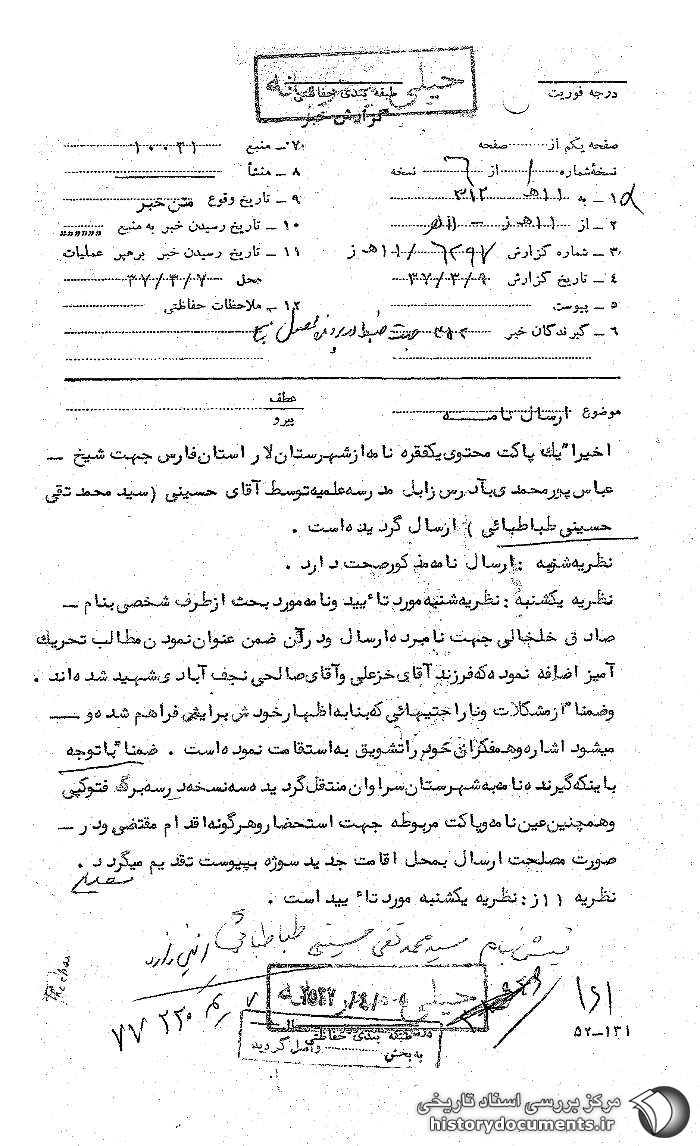 خیلی محرمانه
طبقه بندی حفاظتی
درجه فوریت
گزارش خبر
صفحه یکم از صفحه
نسخه شماره ۱ از ۶ نسخه
۱ـ به ۱۱هـ ۳۱۲
۲ـ از ۱۱هـ ز
۳ـ شماره گزارش ۶۲۹۷/۱۱هـ ز
۴ـ تاریخ گزارش ۳۷/۳/۹
۵ـ پیوست
۶ـ گیرندگان خبر ۳۱۲
۷ـ منبع ۱۰۰۳۱
۸ـ منشأ
۹ـ تاریخ وقوع متن خبر
۱۰ـ تاریخ رسیدن خبر به منبع
۱۱ـ تاریخ رسیدن خبر برهبر عملیات
محل ۳۷/۳/۷
۱۲ـ ملاحظات حفاظتی
موضوع ارسال نامه
عطف
پیرو
اخیرا" یك پاکت محتوی یکفقره نامه از شهرستان لار استان فارس جهت شیخ ـ
عباس پورمحمدی بآدرس زابل مدرسه علمیه توسط آقای حسینی (سید محمد تقی
حسینی طباطبائی) ارسال گردیده است .
نظریه شنبه : ارسال نامه مذکور صحت دارد .
نظریه یکشنبه : نظریه شنبه مورد تائید و نامه مورد بحث از طرف شخصی بنام ـ
صادقی خلخالی جهت نامبرده ارسال و در آن ضمن عنوان نمودن مطالب تحریك
آمیز اضافه نموده که فرزند آقای خزعلی و آقای صالحی نجف آبادی شهید شده اند .
و ضمنا" از مشکلات و ناراحتیهائی که بنا به اظهار خودش برایش فراهم شده و ـ
میشود اشاره و همفکران خود را تشویق به استقامت نموده است . ضمنا" با توجه
با ینکه گیرنده نامه به شهرستان سراوان منتقل گردیده سه نسخه در سه برگ فتوکپی
و همچنین عین نامه و پاکت مربوطه جهت استحضار و هرگونه اقدام مقتضی و در ـ
صورت مصلحت ارسال بمحل اقامت جدید سوژه بپیوست تقدیم میگردد .
نظریه ۱۱ز : نظریه یکشنبه مورد تائید است .
فیش بنام سید محمد تقی حسینی طباطبائی
خیلی محرمانه
طبقه بندی حفاظتی
به بخش واصل گردید
۵۲-۱۳۱
مرکز بررسی اسناد تاریخی
historydocuments.ir